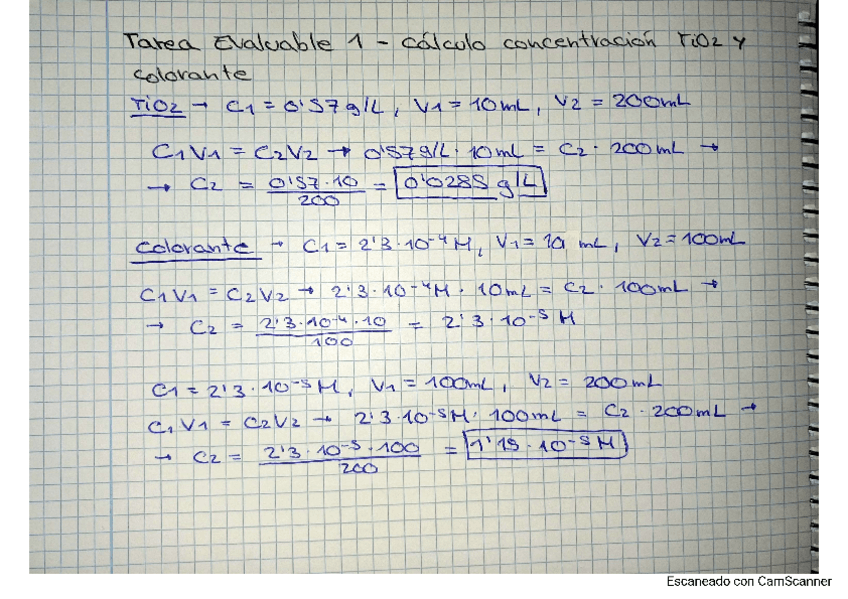 Tarea Evaluable 1 - cálculo concentración TiO2 y
colorante
TiO2 → C1 = 0'57 g/L, V1 = 10 mL, V2 = 200 mL
C1V1 = C2V2 → 0'57 g/L · 10 mL = C2 · 200 mL →
→ C2 = 0'57·10 / 200 = 0'0285 g/L
Colorante → C1 = 2'3·10⁻⁴ M, V1 = 10 mL, V2 = 100 mL
C1V1 = C2V2 → 2'3·10⁻⁴ M · 10 mL = C2 · 100 mL →
→ C2 = 2'3·10⁻⁴·10 / 100 = 2'3·10⁻⁵ M
C1 = 2'3·10⁻⁵ M, V1 = 100 mL, V2 = 200 mL
C1V1 = C2V2 → 2'3·10⁻⁵ M · 100 mL = C2 · 200 mL →
→ C2 = 2'3·10⁻⁵·100 / 200 = 1'15·10⁻⁵ M
Escaneado con CamScanner